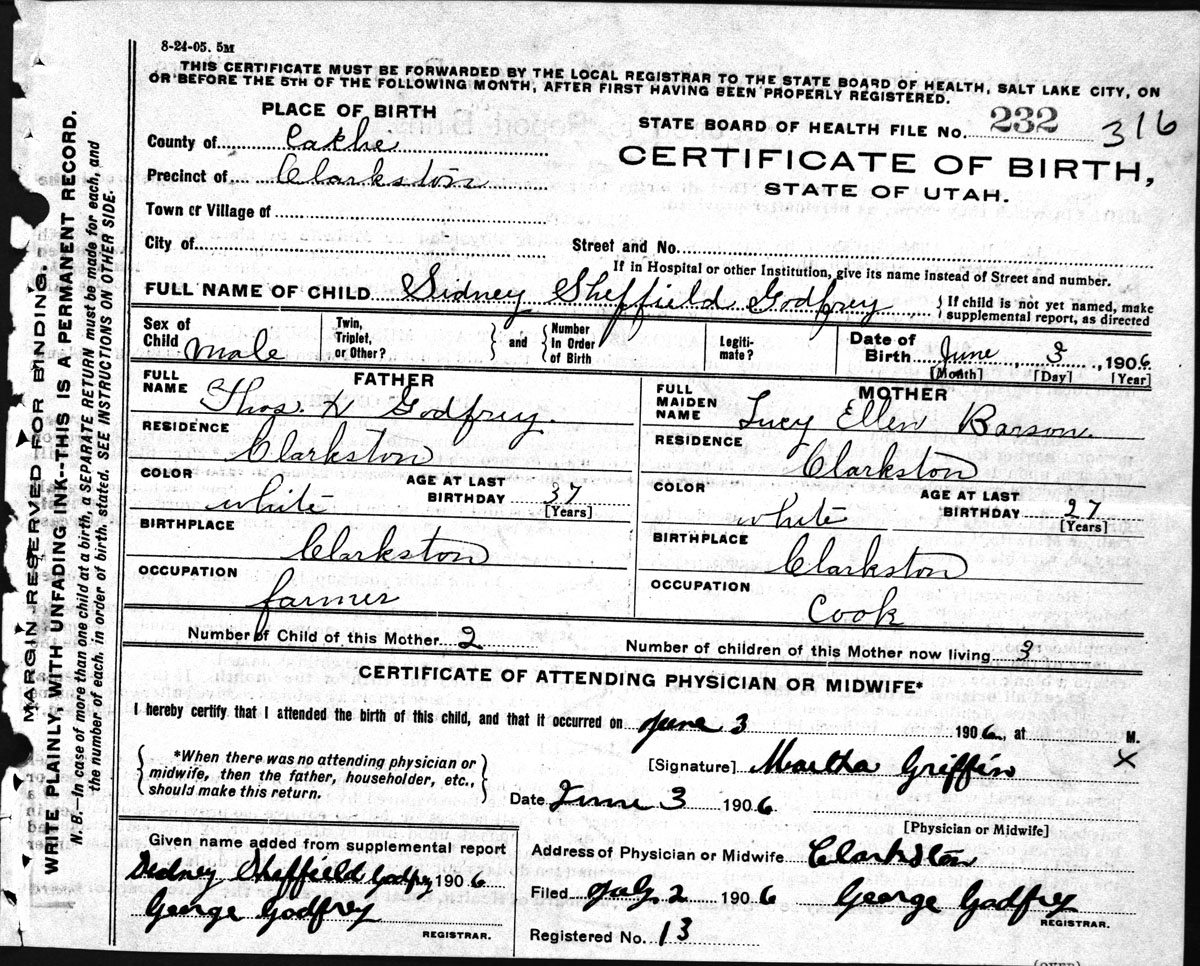 8-24-05. 5M
THIS CERTIFICATE MUST BE FORWARDED BY THE LOCAL REGISTRAR TO THE STATE BOARD OF HEALTH, SALT LAKE CITY, ON
OR BEFORE THE 5TH OF THE FOLLOWING MONTH, AFTER FIRST HAVING BEEN PROPERLY REGISTERED.
PLACE OF BIRTH
STATE BOARD OF HEALTH FILE No. 232 316
County of Cakhe
CERTIFICATE OF BIRTH,
Precinct of Clarkston
STATE OF UTAH.
Town or Village of
City of Street and No.
If in Hospital or other Institution, give its name instead of Street and number.
FULL NAME OF CHILD Sidney Sheffield Godfrey { If child is not yet named, make supplemental report, as directed
Sex of Child male Twin, Triplet, or Other? } and { Number In Order of Birth Legiti-mate? Date of Birth June, 3, 1906
[Month] [Day] [Year]
FATHER
FULL NAME Thos. H Godfrey.
RESIDENCE Clarkston
COLOR white AGE AT LAST BIRTHDAY 37 [Years]
BIRTHPLACE Clarkston
OCCUPATION farmer
MOTHER
FULL MAIDEN NAME Lucy Ellen Barson.
RESIDENCE Clarkston
COLOR white AGE AT LAST BIRTHDAY 27 [Years]
BIRTHPLACE Clarkston
OCCUPATION Cook
Number of Child of this Mother 2 Number of children of this Mother now living 3
CERTIFICATE OF ATTENDING PHYSICIAN OR MIDWIFE*
I hereby certify that I attended the birth of this child, and that it occurred on June 3 1906, at M.
{ *When there was no attending physician or
midwife, then the father, householder, etc.,
should make this return. }
[Signature] Martha Griffin X
Date June 3 1906.
[Physician or Midwife]
Given name added from supplemental report
Sidney Sheffield Godfrey 1906
George Godfrey
REGISTRAR.
Address of Physician or Midwife Clarkston
Filed July 2 1906 George Godfrey
REGISTRAR.
Registered No. 13
(OVER)
MARGIN RESERVED FOR BINDING.
WRITE PLAINLY, WITH UNFADING INK--THIS IS A PERMANENT RECORD.
N. B.—In case of more than one child at a birth, a SEPARATE RETURN must be made for each, and
the number of each, in order of birth, stated. SEE INSTRUCTIONS ON OTHER SIDE.